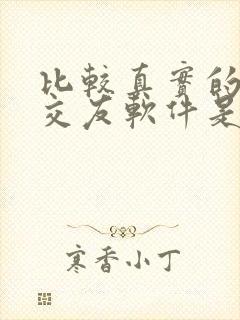 比較真實的
交友軟件是
寒香小丁